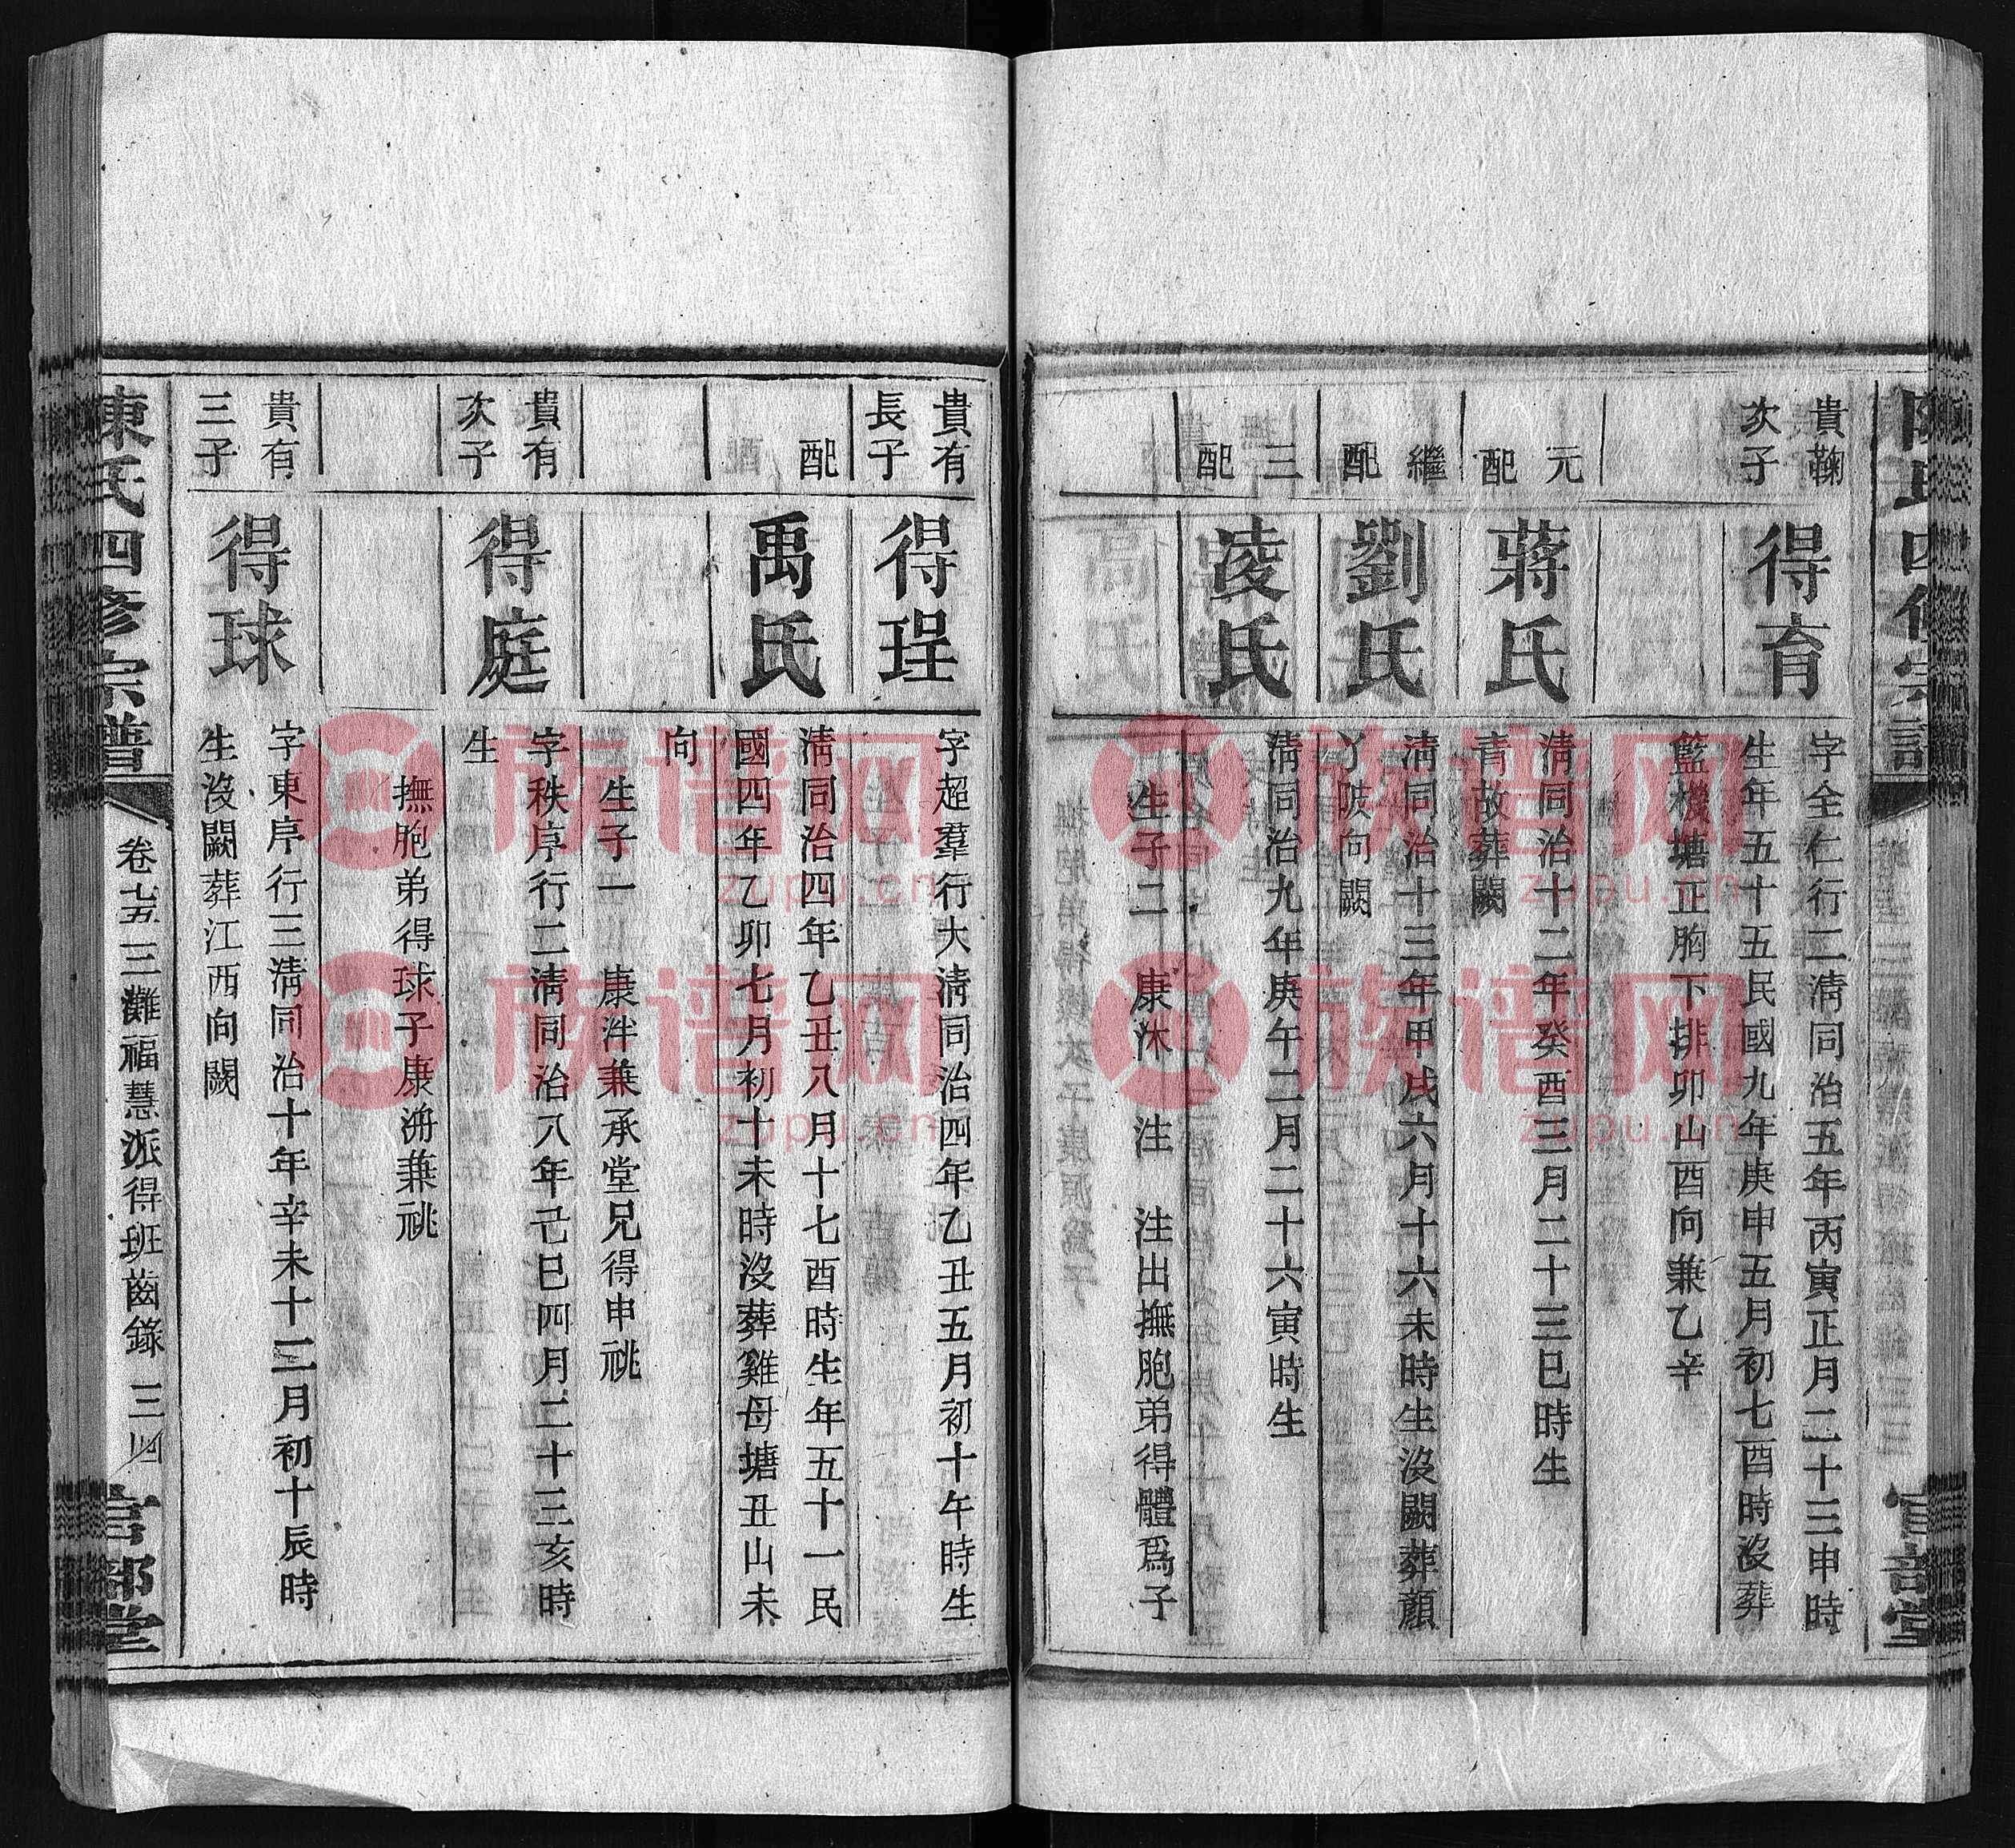 官部堂
貴鞠
次子
得育
字全仁行二淸同治五年丙寅正月二十三申時
生年五十五民國九年庚申五月初七酉時沒葬
籃機塘正胸下排卯山酉向兼乙辛
元
配
蔣氏
淸同治十二年癸酉三月二十三巳時生
青故葬闕
繼
配
劉氏
淸同治十三年甲戌六月十六未時生沒闕葬顏
丫陂向闕
三
配
凌氏
淸同治九年庚午二月二十六寅時生
生子二　康沐　注　注出撫胞弟得體爲子
貴有
長子
得珵
字超羣行大淸同治四年乙丑五月初十午時生
配
禹氏
淸同治四年乙丑八月十七酉時生年五十一民
國四年乙卯七月初十未時沒葬雞母塘丑山未
向
生子一　康泮兼承堂兄得申祧
貴有
次子
得庭
字秩序行二淸同治八年己巳四月二十三亥時
生
撫胞弟得球子康洀兼祧
貴有
三子
得球
字東序行三淸同治十年辛未十二月初十辰時
生沒闕葬江西向闕
陳氏四修宗譜
卷七五三灘福慧派得班齒錄　三四
官部堂
族谱网
zupu.cn
族谱网
zupu.cn
族谱网
zupu.cn
族谱网
zupu.cn